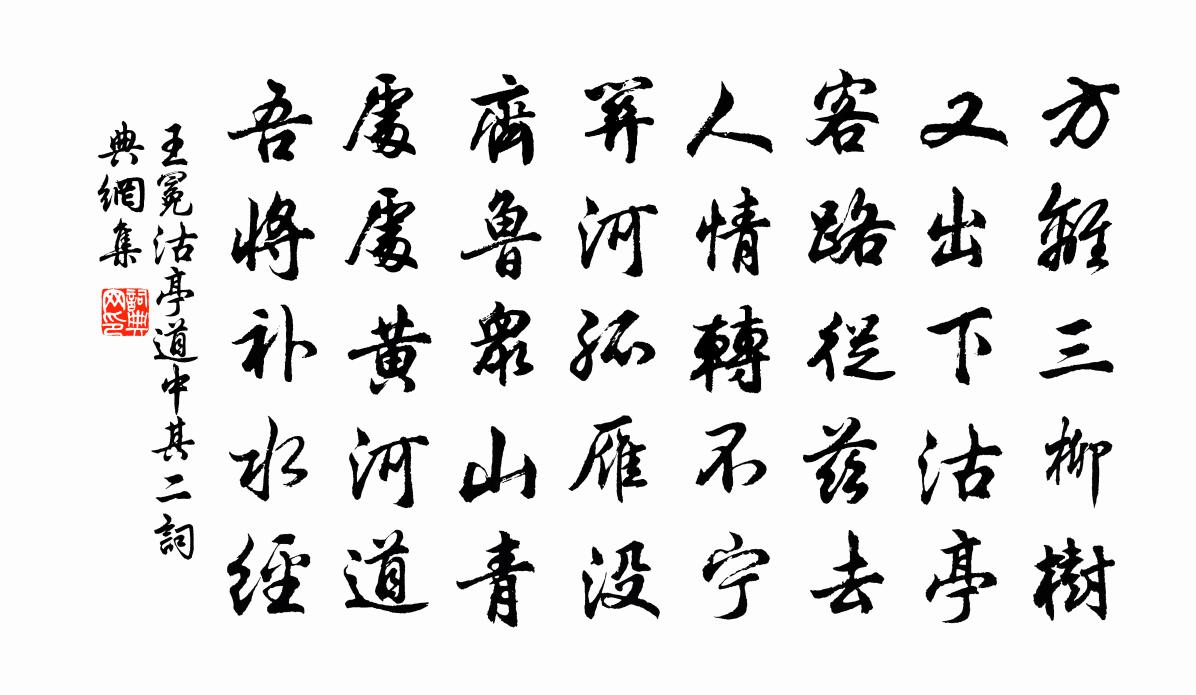 方離三柳樹
又出下沽亭
客路從茲去
人情轉不宁
開河孤雁没
齊魯衆山青
處處黄河道
吾將补水經
王冕沽亭道中其二詞
典網集
詞典
网印